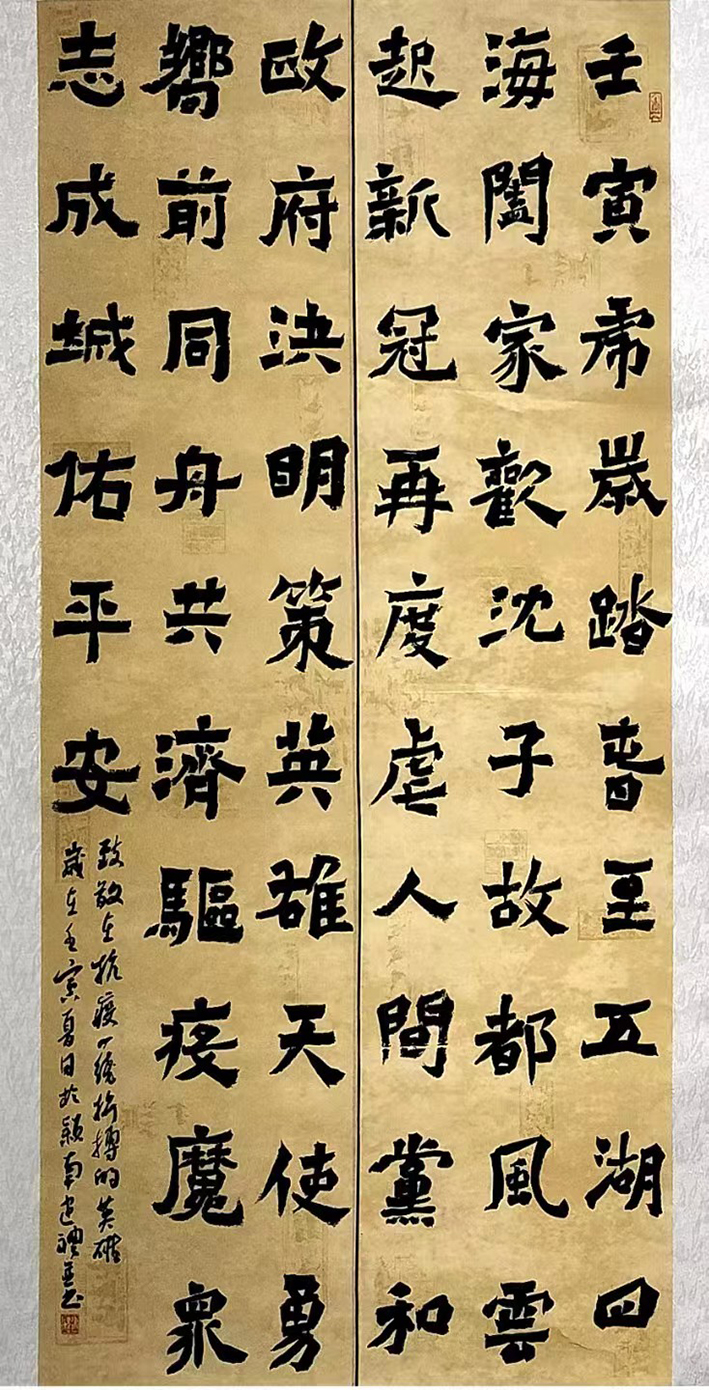 壬寅虎歲踏春至五湖四
海闔家歡沈子故都風雲
起新冠再度虐人間黨和
政府決明策英雄天使勇
嚮前同舟共濟驅疫魔眾
志成城佑平安
致敬在抗疫一綫拚搏的英雄
歲在壬寅夏日於潁南禮並书